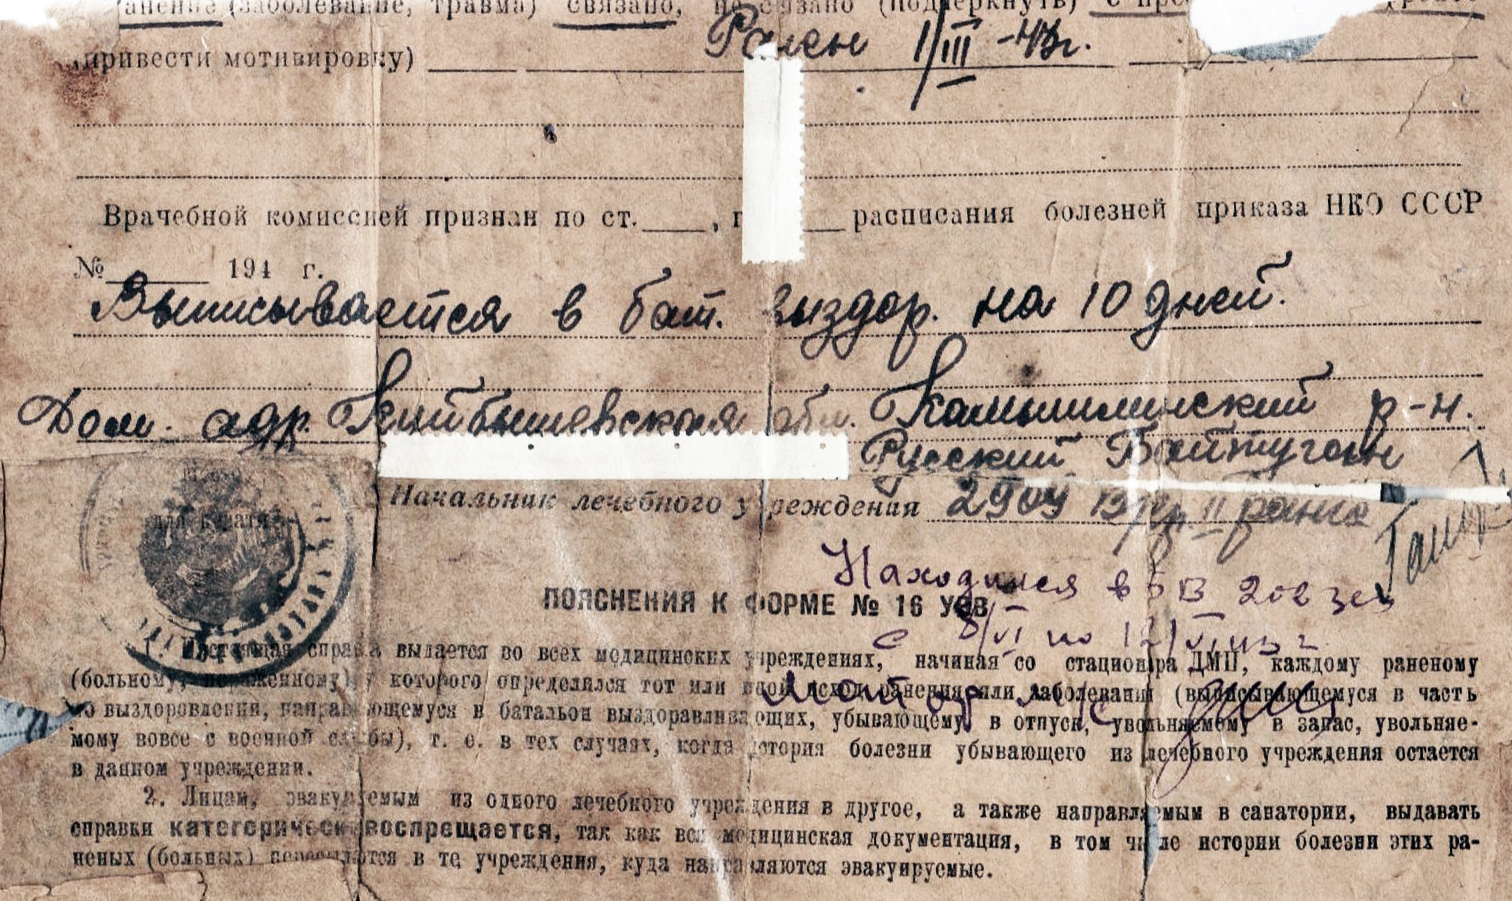 (заболевание, травма) связано, не связано (подчеркнуть)
привести мотивировку) Ранен 1/III-43г.
Врачебной комиссией признан по ст. ____, г ____ расписания болезней приказа НКО СССР
№ ____ 194 г.
Выписывается в бат. выздор. на 10 дней.
Дом. адр. Куйбышевская обл. Камышлинский р-н.
Русский Байтуган
Начальник лечебного учреждения 2909 В/вр. II ранга
Находился в БВ 202 зсп
с 8/VI по
ПОЯСНЕНИЯ К ФОРМЕ № 16
1. Настоящая справка выдается во всех медицинских учреждениях, начиная со стационара ДМП, каждому раненому
(больному, пораженному) у которого определился тот или иной исход ранения или заболевания (выписывающемуся в часть
по выздоровлении, направляющемуся в батальон выздоравливающих, убывающему в отпуск, увольняемому в запас, увольняе-
мому вовсе с военной службы), т. е. в тех случаях, когда история болезни убывающего из лечебного учреждения остается
в данном учреждении.
2. Лицам, эвакуируемым из одного лечебного учреждения в другое, а также направляемым в санатории, выдавать
справки категорически воспрещается, так как вся медицинская документация, в том числе истории болезни этих ра-
неных (больных) пересылаются в те учреждения, куда направляются эвакуируемые.